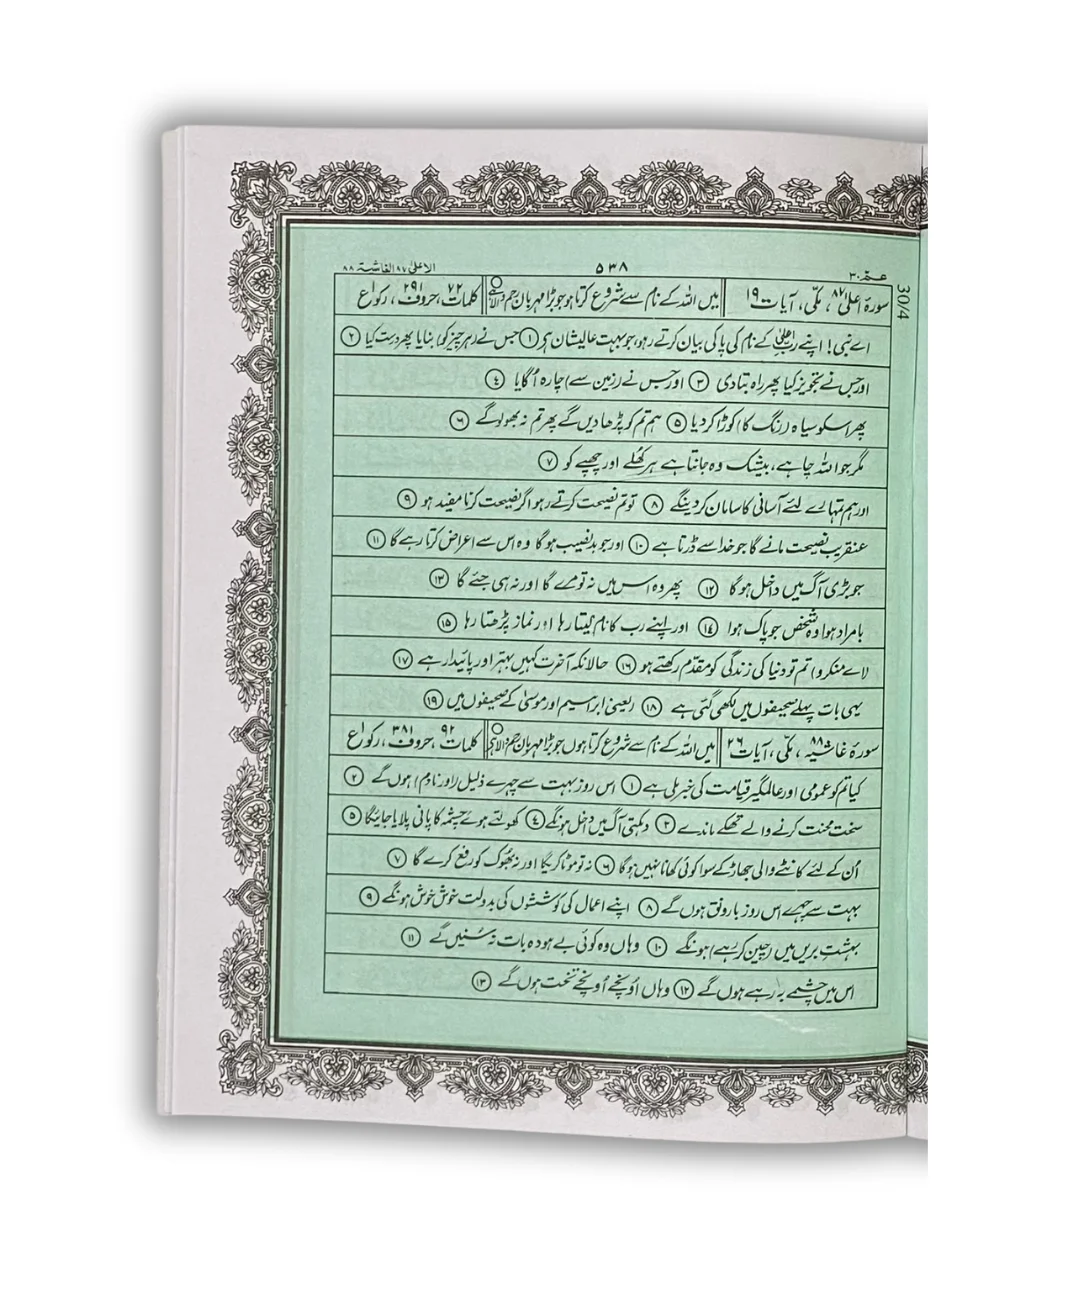 عمّ ۳۰ ۵۳۸ الاعلیٰ ۸۷ الغاشیۃ ۸۸
30/4
سورۂ اعلیٰ ۸۷، مکّی، آیات ۱۹ میں اللہ کے نام سے شروع کرتا ہو جو بڑا مہربان رحم والا ہے کلمات ۷۲، حروف ۲۹۱، رکوع ۱
اے نبی! اپنے رب اعلیٰ کے نام کی پاکی بیان کرتے رہو، جو بہت عالیشان ہی ۱ جس نے (ہر چیز کو) بنایا پھر درست کیا ۲
اور جس نے تجویز کیا پھر راہ بتادی ۳ اور جس نے (زمین سے) چارہ اُگایا ۴
پھر اسکو سیاہ (رنگ کا) کوڑا کردیا ۵ ہم تم کو پڑھا دیں گے پھر تم نہ بھولو گے ۶
مگر جو اللہ چاہے، بیشک وہ جانتا ہے ہر کُھلے اور چھپے کو ۷
اور ہم تمہارے لئے آسانی کا سامان کردینگے ۸ تو تم نصیحت کرتے رہو اگر نصیحت کرنا مفید ہو ۹
عنقریب نصیحت مانے گا جو خدا سے ڈرتا ہے ۱۰ اور جو بدنصیب ہوگا وہ اس سے اعراض کرتا رہے گا ۱۱
جو بڑی آگ میں داخل ہوگا ۱۲ پھر وہ اس میں نہ تو مرے گا اور نہ ہی جئے گا ۱۳
بامراد ہوا وہ شخص جو پاک ہوا ۱۴ اور اپنے رب کا نام لیتا رہا اور نماز پڑھتا رہا ۱۵
(اے منکرو) تم تو دنیا کی زندگی کو مقدّم رکھتے ہو ۱۶ حالانکہ آخرت کہیں بہتر اور پائیدار ہے ۱۷
یہی بات پہلے صحیفوں میں لکھی گئی ہے ۱۸ (یعنی) ابراہیم اور موسیٰ کے صحیفوں میں ۱۹
سورۂ غاشیہ ۸۸، مکّی، آیات ۲۶ میں اللہ کے نام سے شروع کرتا ہوں جو بڑا مہربان رحم والا ہے کلمات ۹۲، حروف ۳۸۱، رکوع ۱
کیا تم کو عمومی اور عالمگیر قیامت کی خبر ملی ہے ۱ اس روز بہت سے چہرے ذلیل (اور نادم) ہوں گے ۲
سخت محنت کرنے والے تھکے ماندے ۳ دہکتی آگ میں داخل ہونگے ۴ کھولتے ہوئے چشمہ کا پانی پلایا جائیگا ۵
اُن کے لئے کانٹے والی جھاڑ کے سوا کوئی کھانا نہیں ہوگا ۶ نہ تو موٹا کریگا اور نہ بھوک کو رفع کرے گا ۷
بہت سے چہرے اس روز بارونق ہوں گے ۸ اپنے اعمال کی کوششوں کی بدولت خوش خوش ہونگے ۹
بہشتِ بریں میں (چین کررہے) ہونگے ۱۰ وہاں وہ کوئی بے ہودہ بات نہ سُنیں گے ۱۱
اس میں چشمے بہ رہے ہوں گے ۱۲ وہاں اُونچے اُونچے تخت ہوں گے ۱۳